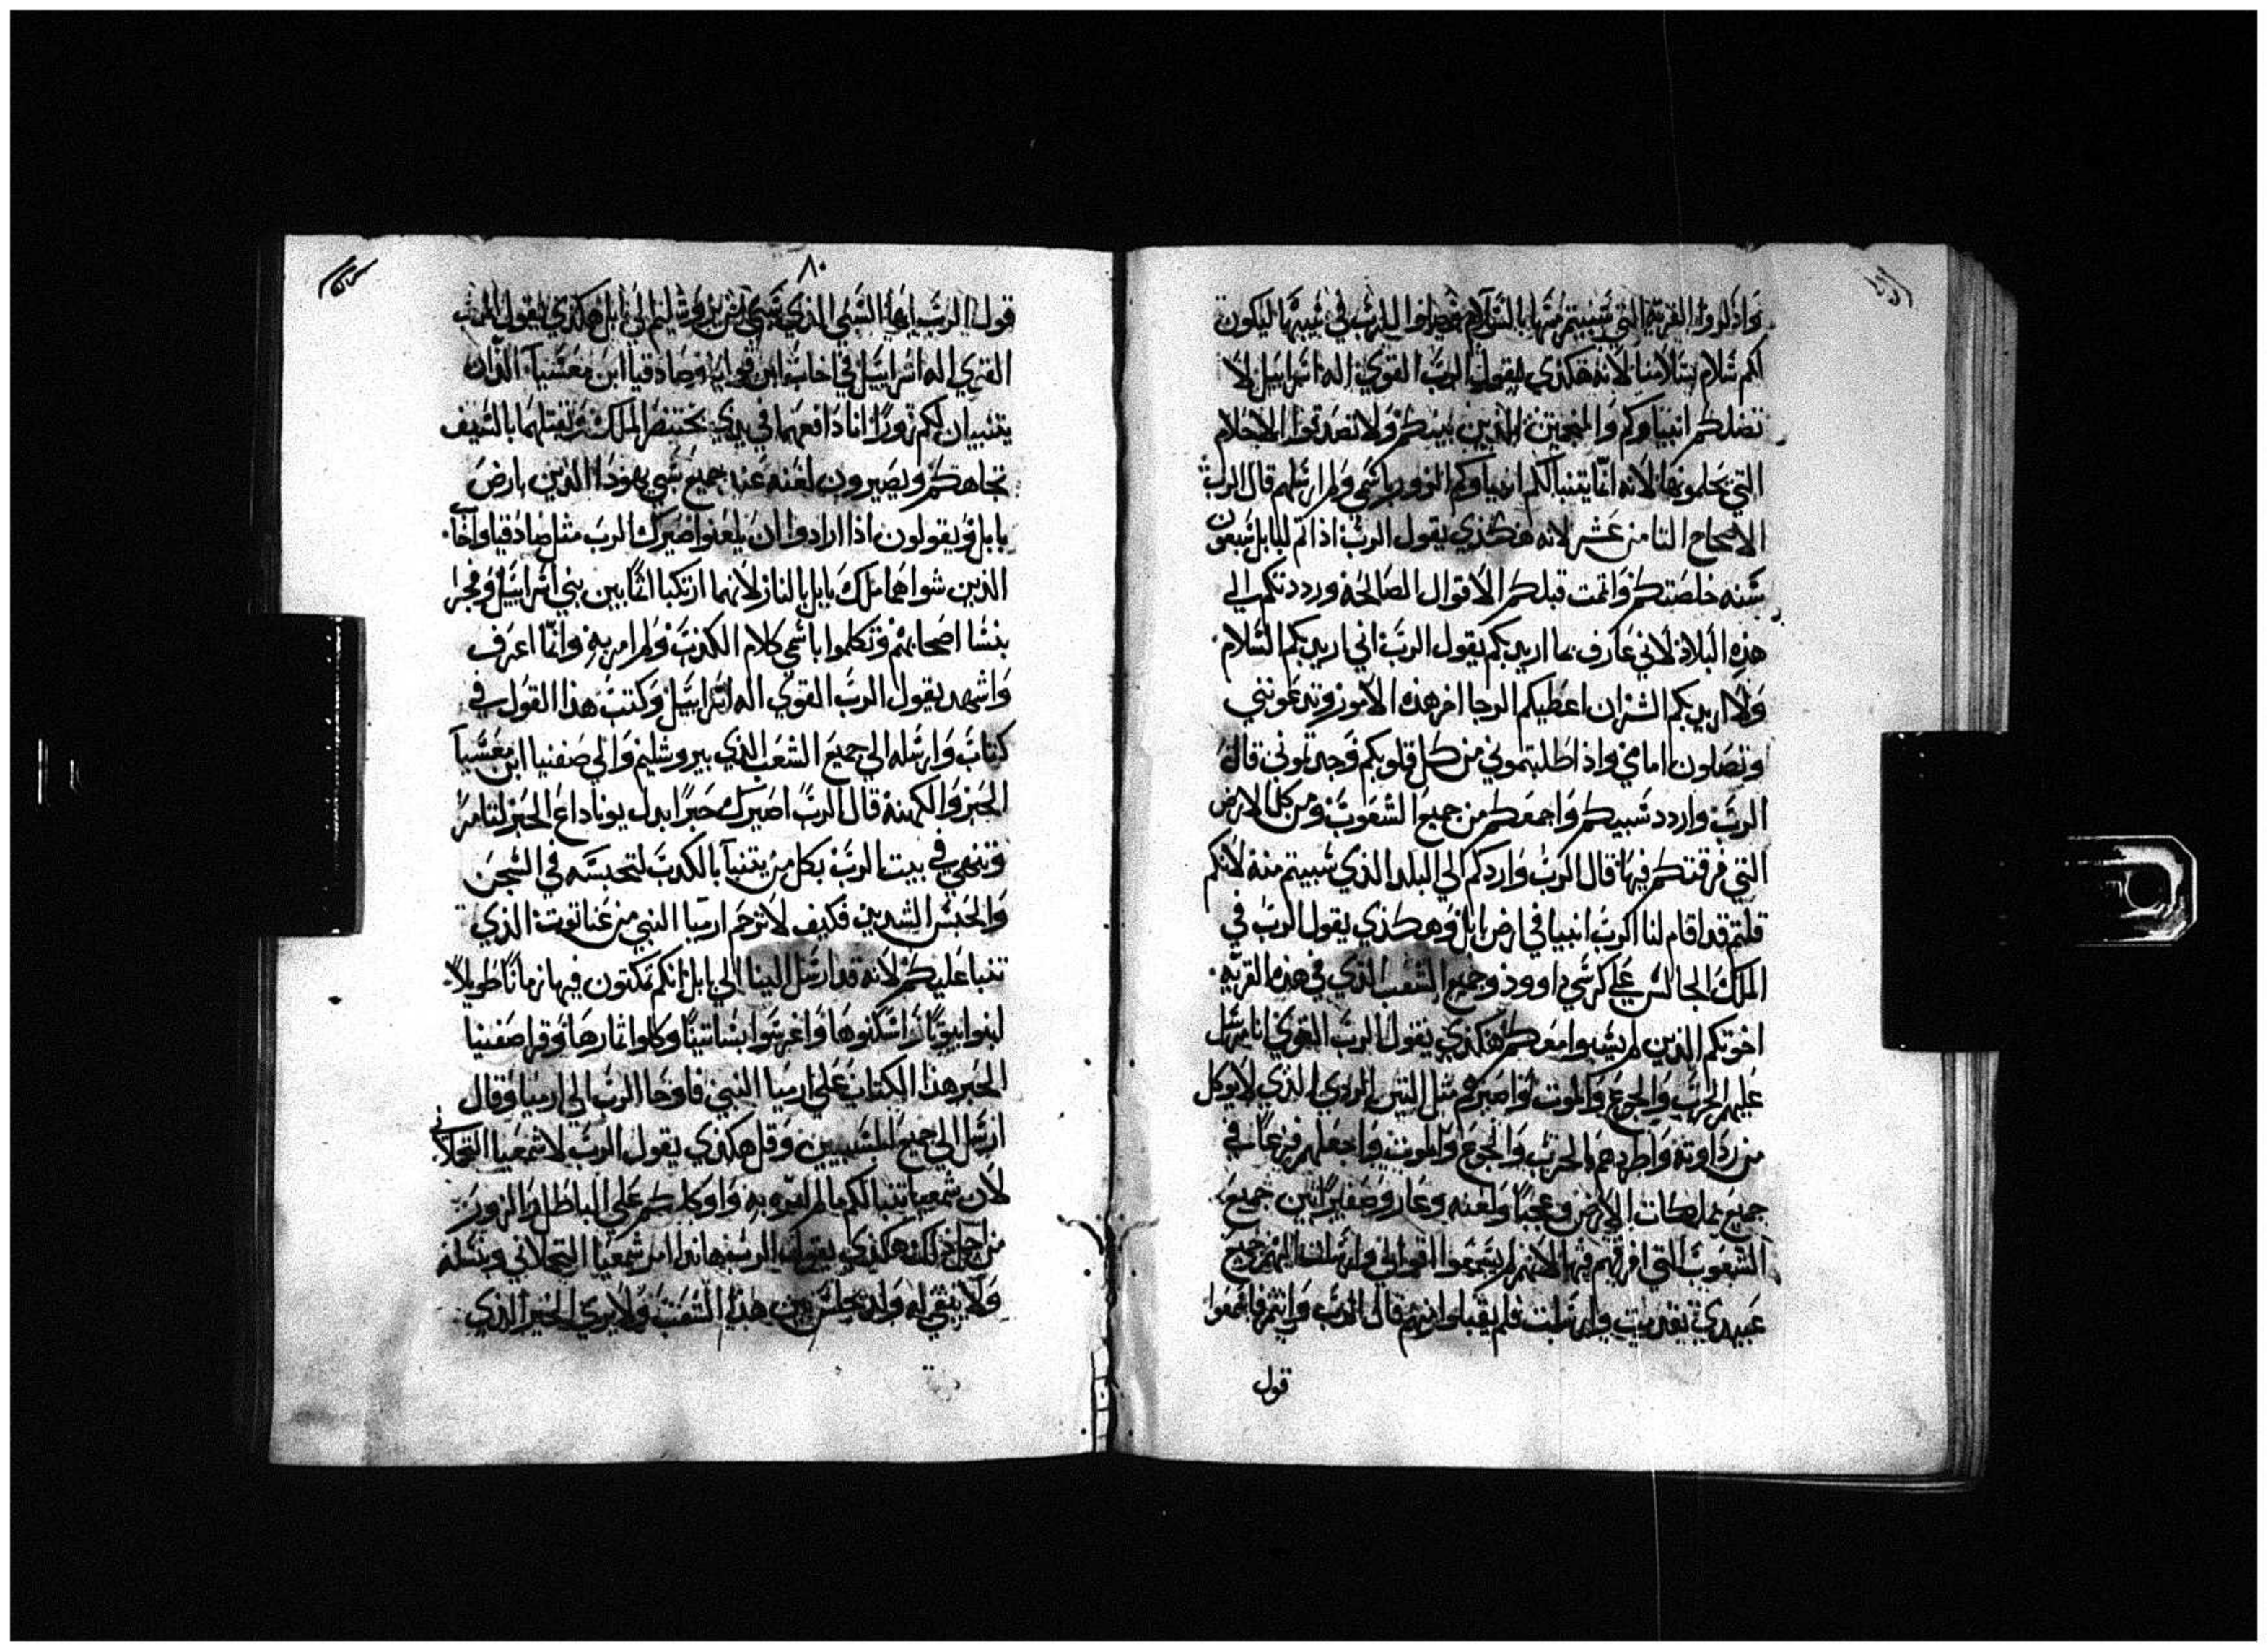 واذكروا القرية التي سبيتم منها بالسلام وصلوا للرب في سببها ليكون
لكم سلام بسلامتها لانه هكذي يقول الرب القوي اله اسراييل لا
تضلكم انبياوكم والمنجمين الذين بينكم ولا تصدقوا الاحلام
التي تحلمونها لانه انما يتنبا لكم انبياوكم الزور باسمي ولم ارسلهم قال الرب
الاصحاح الثامن عشر لانه هكذي يقول الرب اذا تم لبابل سبعون
سنه خلصتكم واتمت قبلكم الاقوال الصالحه ورددتكم الي
هذه البلاد لاني عارف بما اريد بكم يقول الرب اني اريد بكم السلام
ولا اريد بكم الشر ان اعطيكم الرجا اخر هذه الامور وتدعونني
وتصلون امامي واذا طلبتموني من كل قلوبكم وجدتموني قال
الرب واردد سبيكم واجمعكم من جميع الشعوب ومن كل الارض
التي فرقتكم فيها قال الرب واردكم الي البلد الذي سبيتم منه لانكم
قلتم قد اقام لنا الرب انبيا في ارض بابل وهكذي يقول الرب في
الملك الجالس علي كرسي داوود وجميع الشعب الذي في هذه القريه
اخوتكم الذين لم يسبوا معكم هكذي يقول الرب القوي انا مرسل
عليهم الحرب والجوع والموت واصيرهم مثل التين الردي الذي لا يوكل
من رداوته واطردهم بالحرب والجوع والموت واجعلهم فزعا في
جميع مملكات الارض وعجبا ولعنه وعار وصفيرا بين جميع
الشعوب التي افرقهم فيها لانهم لم يسمعوا اقوالي وارسلت اليهم جميع
عبيدي تقدمت وارسلت فلم يقبلوا منهم قال الرب وانتم فاسمعوا
قول
٨٠
قول الرب يا ايها السبي الذي سبي من يروشليم الي بابل هكذي يقول الرب
القوي اله اسراييل في اخاب ابن قولايا وصادقيا ابن معسيا اللذان
يتنبيان لكم زورا انا دافعهما في يدي بختنصر الملك ويقتلهما بالسيف
تجاهكم ويصيرون لعنه عند جميع سبي يهودا الذين بارض
بابل ويقولون اذا ارادوا ان يلعنوا صيرك الرب مثل صادقيا واخاب
الذين شواهما ملك بابل بالنار لانهما ارتكبا اثما بين بني اسراييل وفجرا
بنسا اصحابهم وتكلموا باسمي كلام الكذب ولم امر به وانا اعرف
واشهد يقول الرب القوي اله اسراييل وكتب هذا القول في
كتاب وارسله الي جميع الشعب الذي بيروشليم والي صفنيا ابن معسيا
الحبر والكهنه قال الرب اصيرك حبرا بدل يوناداع الحبر لتامر
وتنهي في بيت الرب بكل من يتنبا بالكدب لتحبسه في السجن
والحبس الشديد فكيف لا تزجر ارميا النبي من عناتوت الذي
تنبا عليكم لانه قد ارسل الينا الي بابل انكم تمكتون فيها زمانا طويلا
ابنوا بيوتا واسكنوها واغرسوا بساتينا وكلوا ثمارها وقرا صفنيا
الحبر هذا الكتاب علي ارميا النبي فاوحا الرب الي ارميا وقال
ارسل الي جميع المسبيين وقل هكذي يقول الرب لاشمعيا النحلاني
لان شمعيا تنبا لكم ما لم امره به واوكلكم علي الباطل والزور
من اجل ذلك هكذي يقول الرب هاندا امر شمعيا النحلاني ونسله
ولا يبقي له ولد يجلس بين هذا الشعب ولا يري الخير الذي